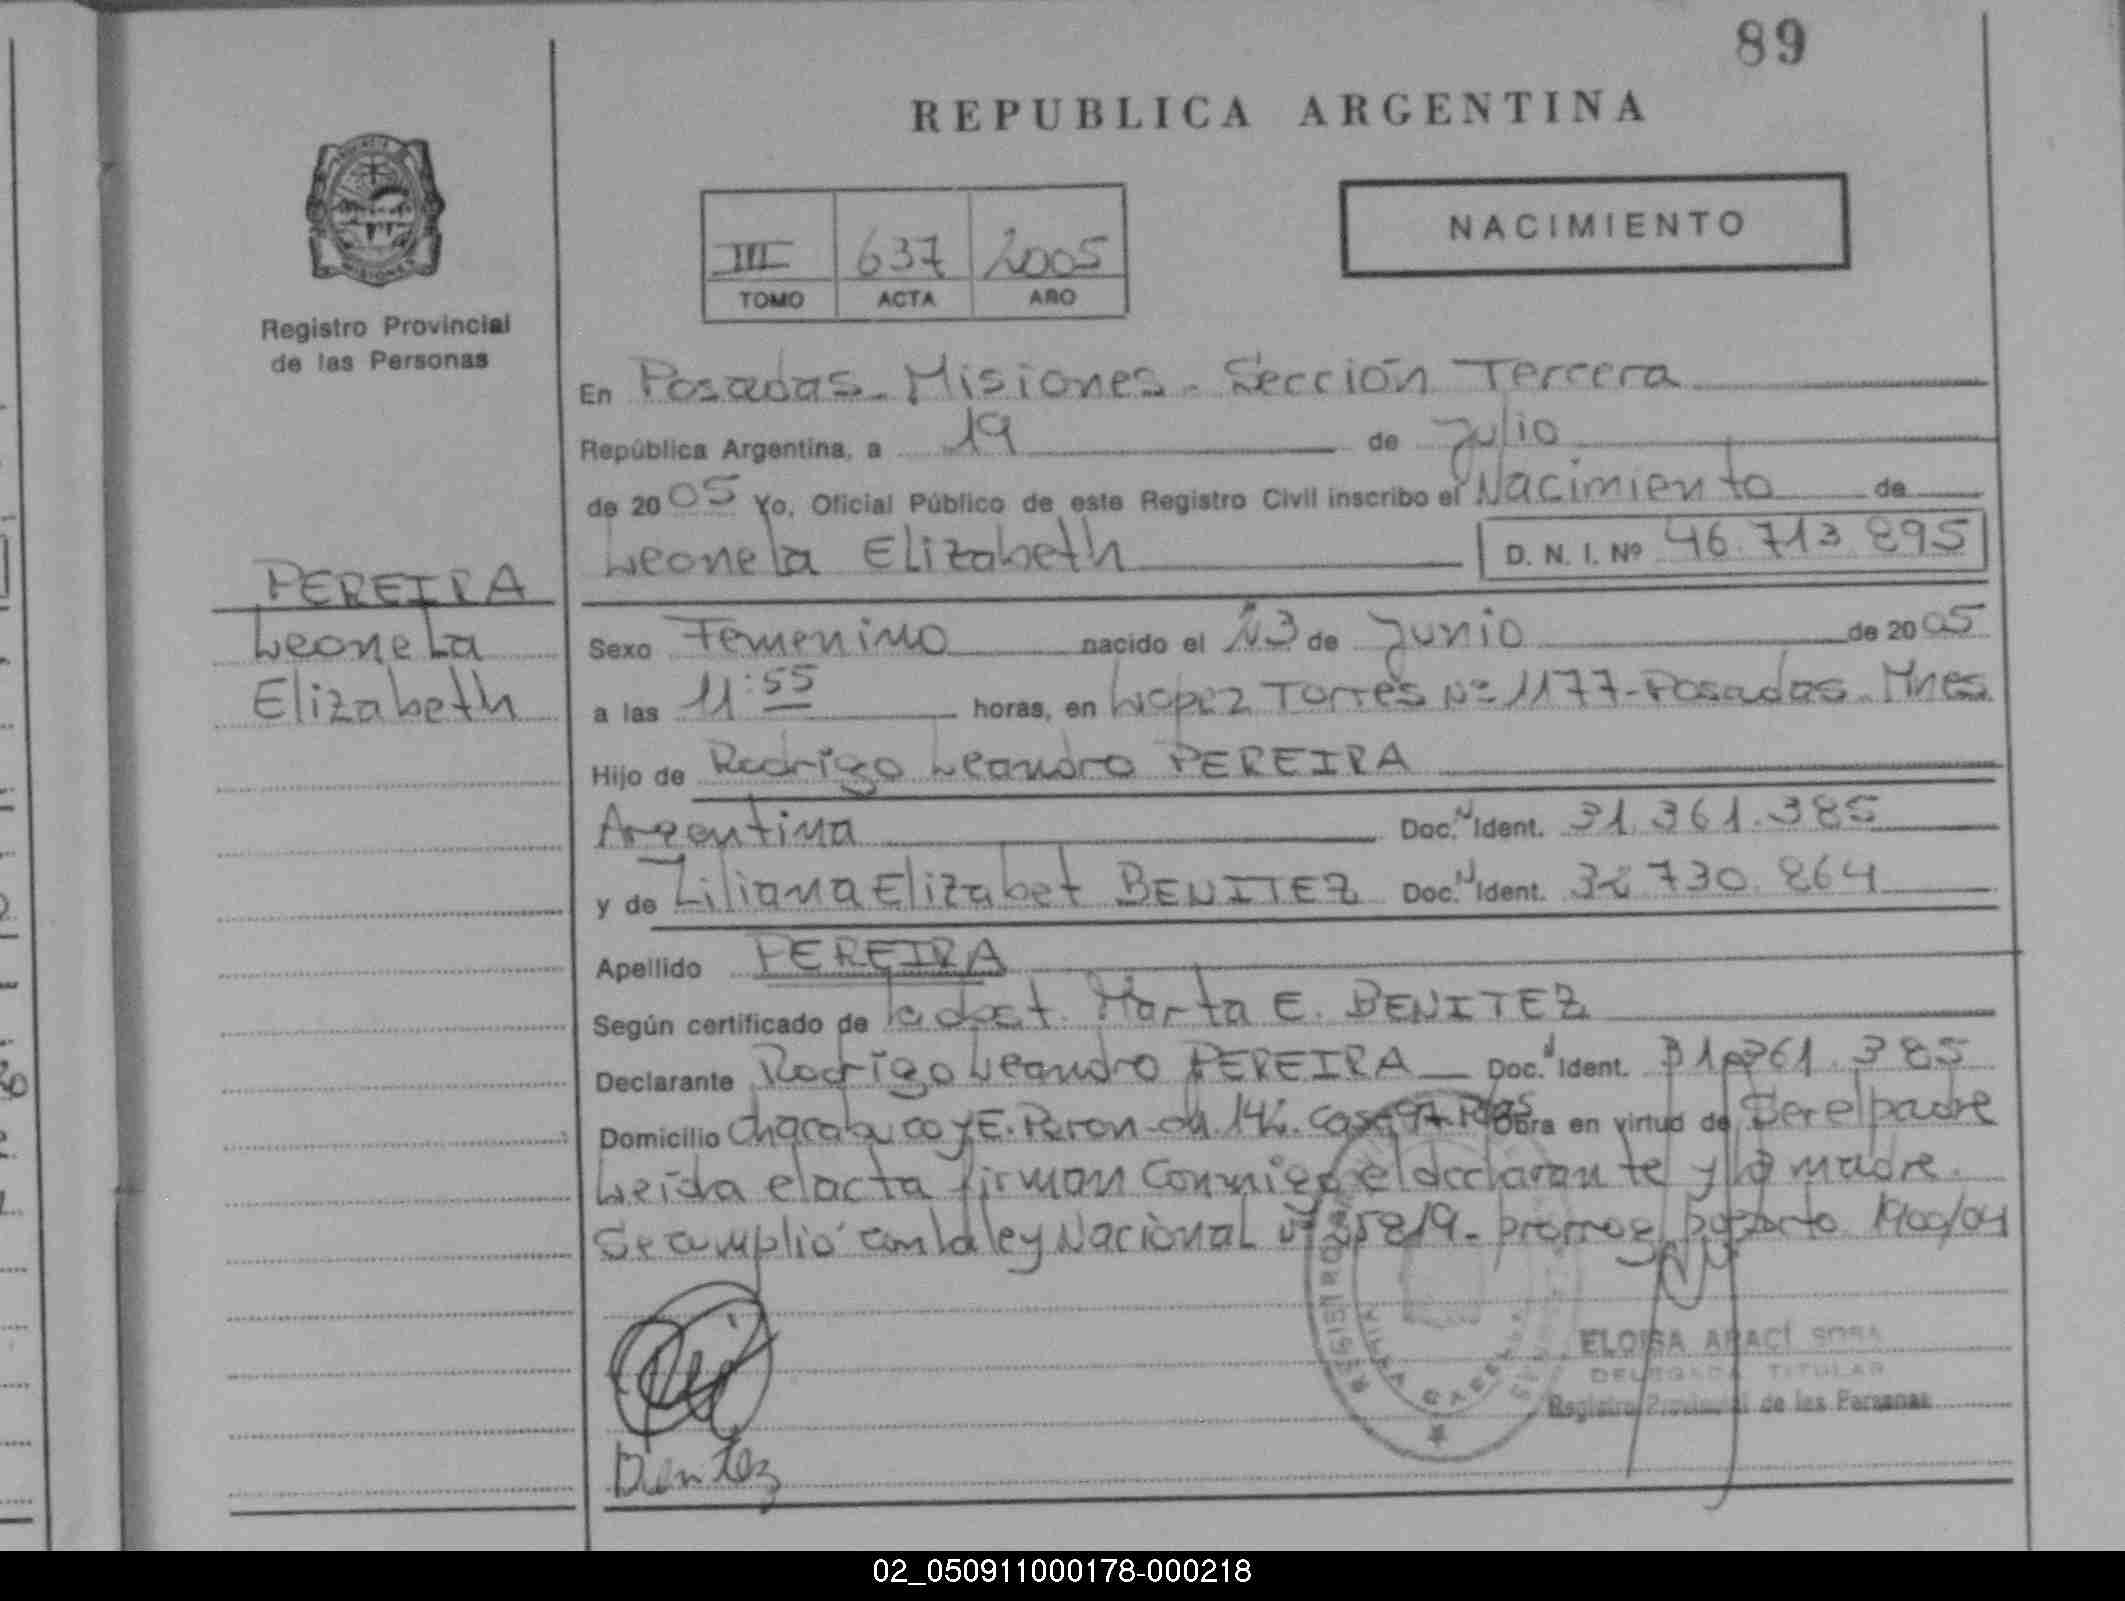 89
REPUBLICA ARGENTINA
NACIMIENTO
III 637 2005
TOMO ACTA AÑO
Registro Provincial
de las Personas
En Posadas - Misiones - Sección Tercera
República Argentina, a 19 de Julio
de 2005 Yo, Oficial Público de este Registro Civil inscribo el Nacimiento de
Leonela Elizabeth D. N. I. Nº 46.713.895
PEREIRA
Leonela
Elizabeth
Sexo Femenino nacido el 13 de Junio de 2005
a las 11:55 horas, en López Torres Nº 1177 - Posadas - Mnes
Hijo de Rodrigo Leandro PEREIRA
Argentina Doc. N Ident. 31.361.385
y de Liliana Elizabet BENITEZ Doc. N Ident. 32.730.864
Apellido PEREIRA
Según certificado de la obst. Marta E. BENITEZ
Declarante Rodrigo Leandro PEREIRA Doc. N Ident. 31.361.385
Domicilio Chacabuco y E. Peron - ch. 142. Casa 97. Pdas Obra en virtud de Ser el padre
Leida el acta firman conmigo el declarante y la madre.
Se amplió con la ley Nacional Nº 25819 - prorrog. por Dcto 1900/04
ELOISA ARACÍ SOSA
DELEGADA TITULAR
Registro Provincial de las Personas
Benitez
02_050911000178-000218